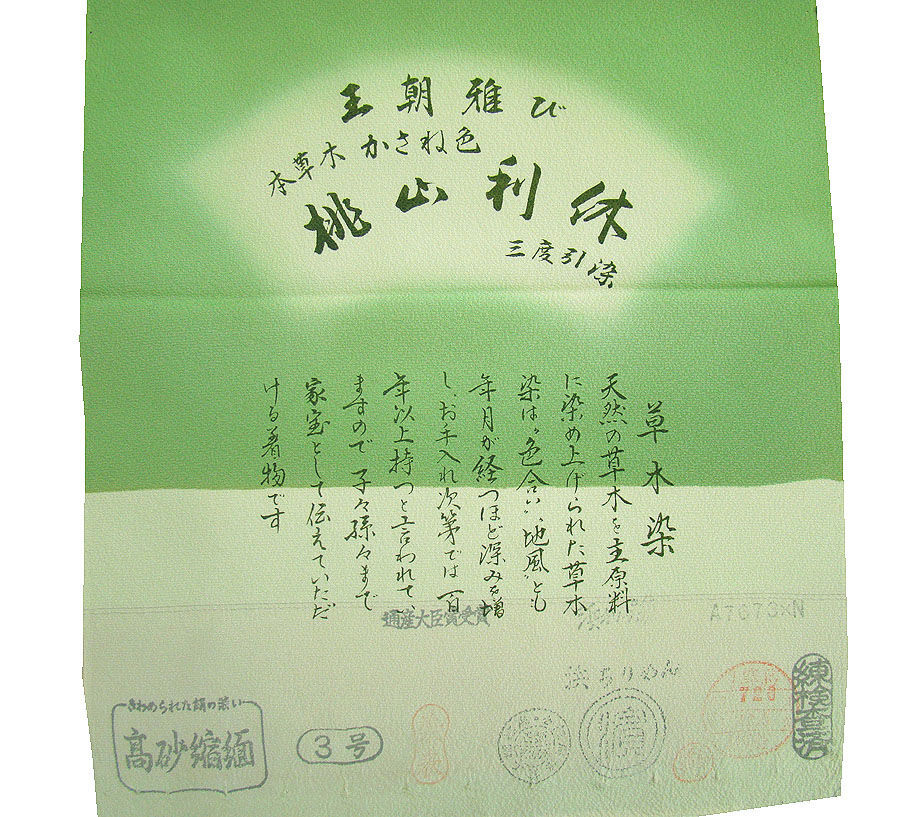 王朝雅び
本草木かさね色
桃山利休
三度引染
草木染
天然の草木を主原料
に染め上げられた草木
染は〝色合い〟〝地風〟とも
年月が経つほど深みを増
し、お手入れ次第では一百
年以上持つと言われてい
ますので子々孫々まで
家宝として伝えていただ
ける着物です
通産大臣賞受賞
浜ちりめん
723
練検査済
きわめられた絹の装い
高砂縮緬
3号